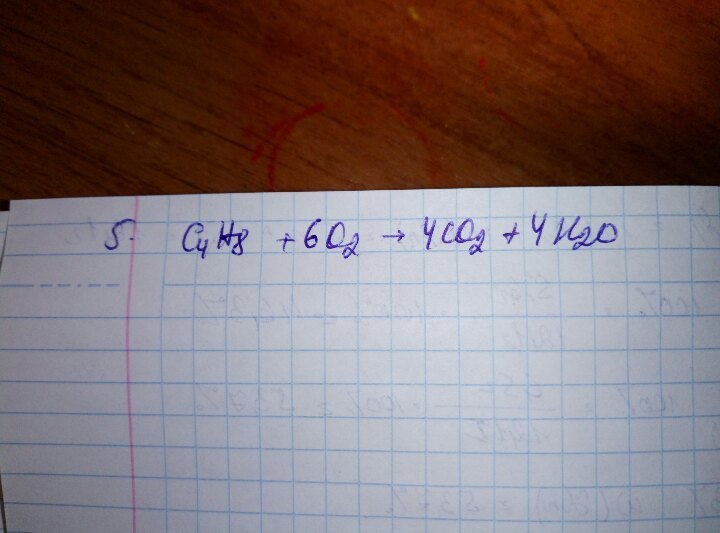 5. C₄H₈ + 6O₂ → 4CO₂ + 4H₂O